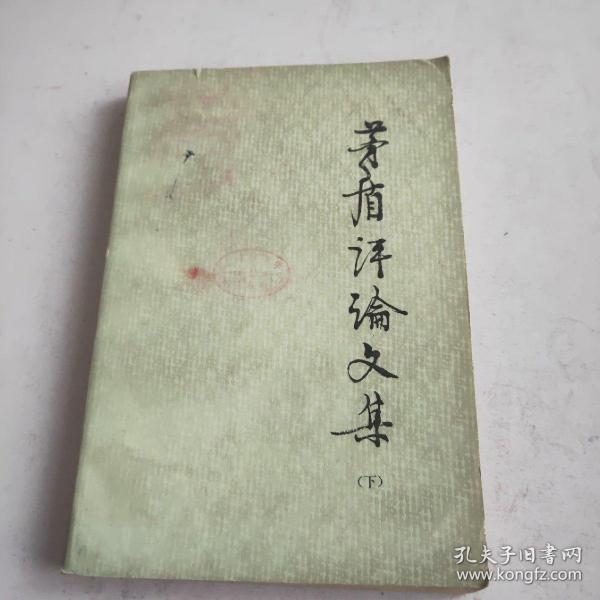 茅盾评論文集
（下）
孔夫子旧书网
www.kongfz.com